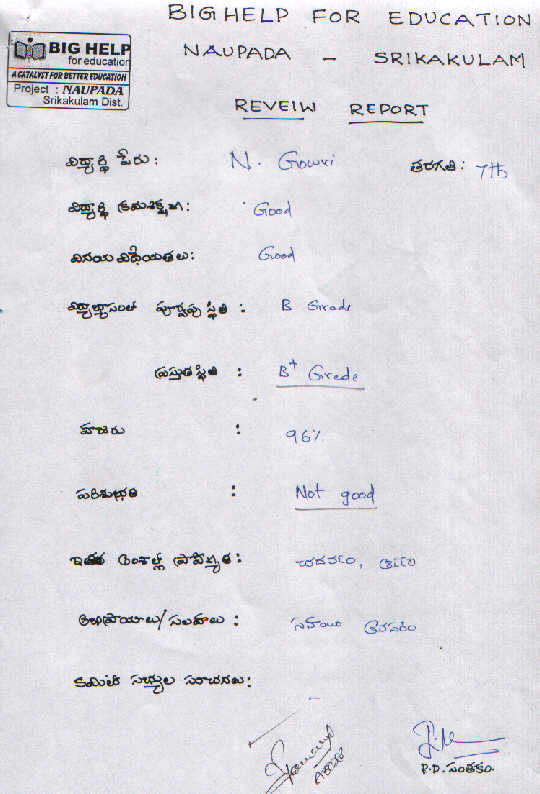 BIG HELP FOR EDUCATION
BIG HELP
for education
A CATALYST FOR BETTER EDUCATION
Project : NAUPADA
Srikakulam Dist.
NAUPADA - SRIKAKULAM
REVEIW REPORT
విద్యార్థి పేరు: N. Gowri తరగతి: 7th
విద్యార్థి క్రమశిక్షణ: Good
వినయ విధేయతలు: Good
విద్యాభ్యాసంలో పూర్వపు స్థితి : B Grade
ప్రస్తుత స్థితి : B+ Grade
హాజరు : 96%
పరిశుభ్రత : Not good
ఇతర అంశాల్లో ప్రావీణ్యత: చదవటం,
అభిప్రాయాలు/సలహాలు : సహాయం అవసరం
కమిటీ సభ్యుల సూచనలు:
P.D. సంతకం